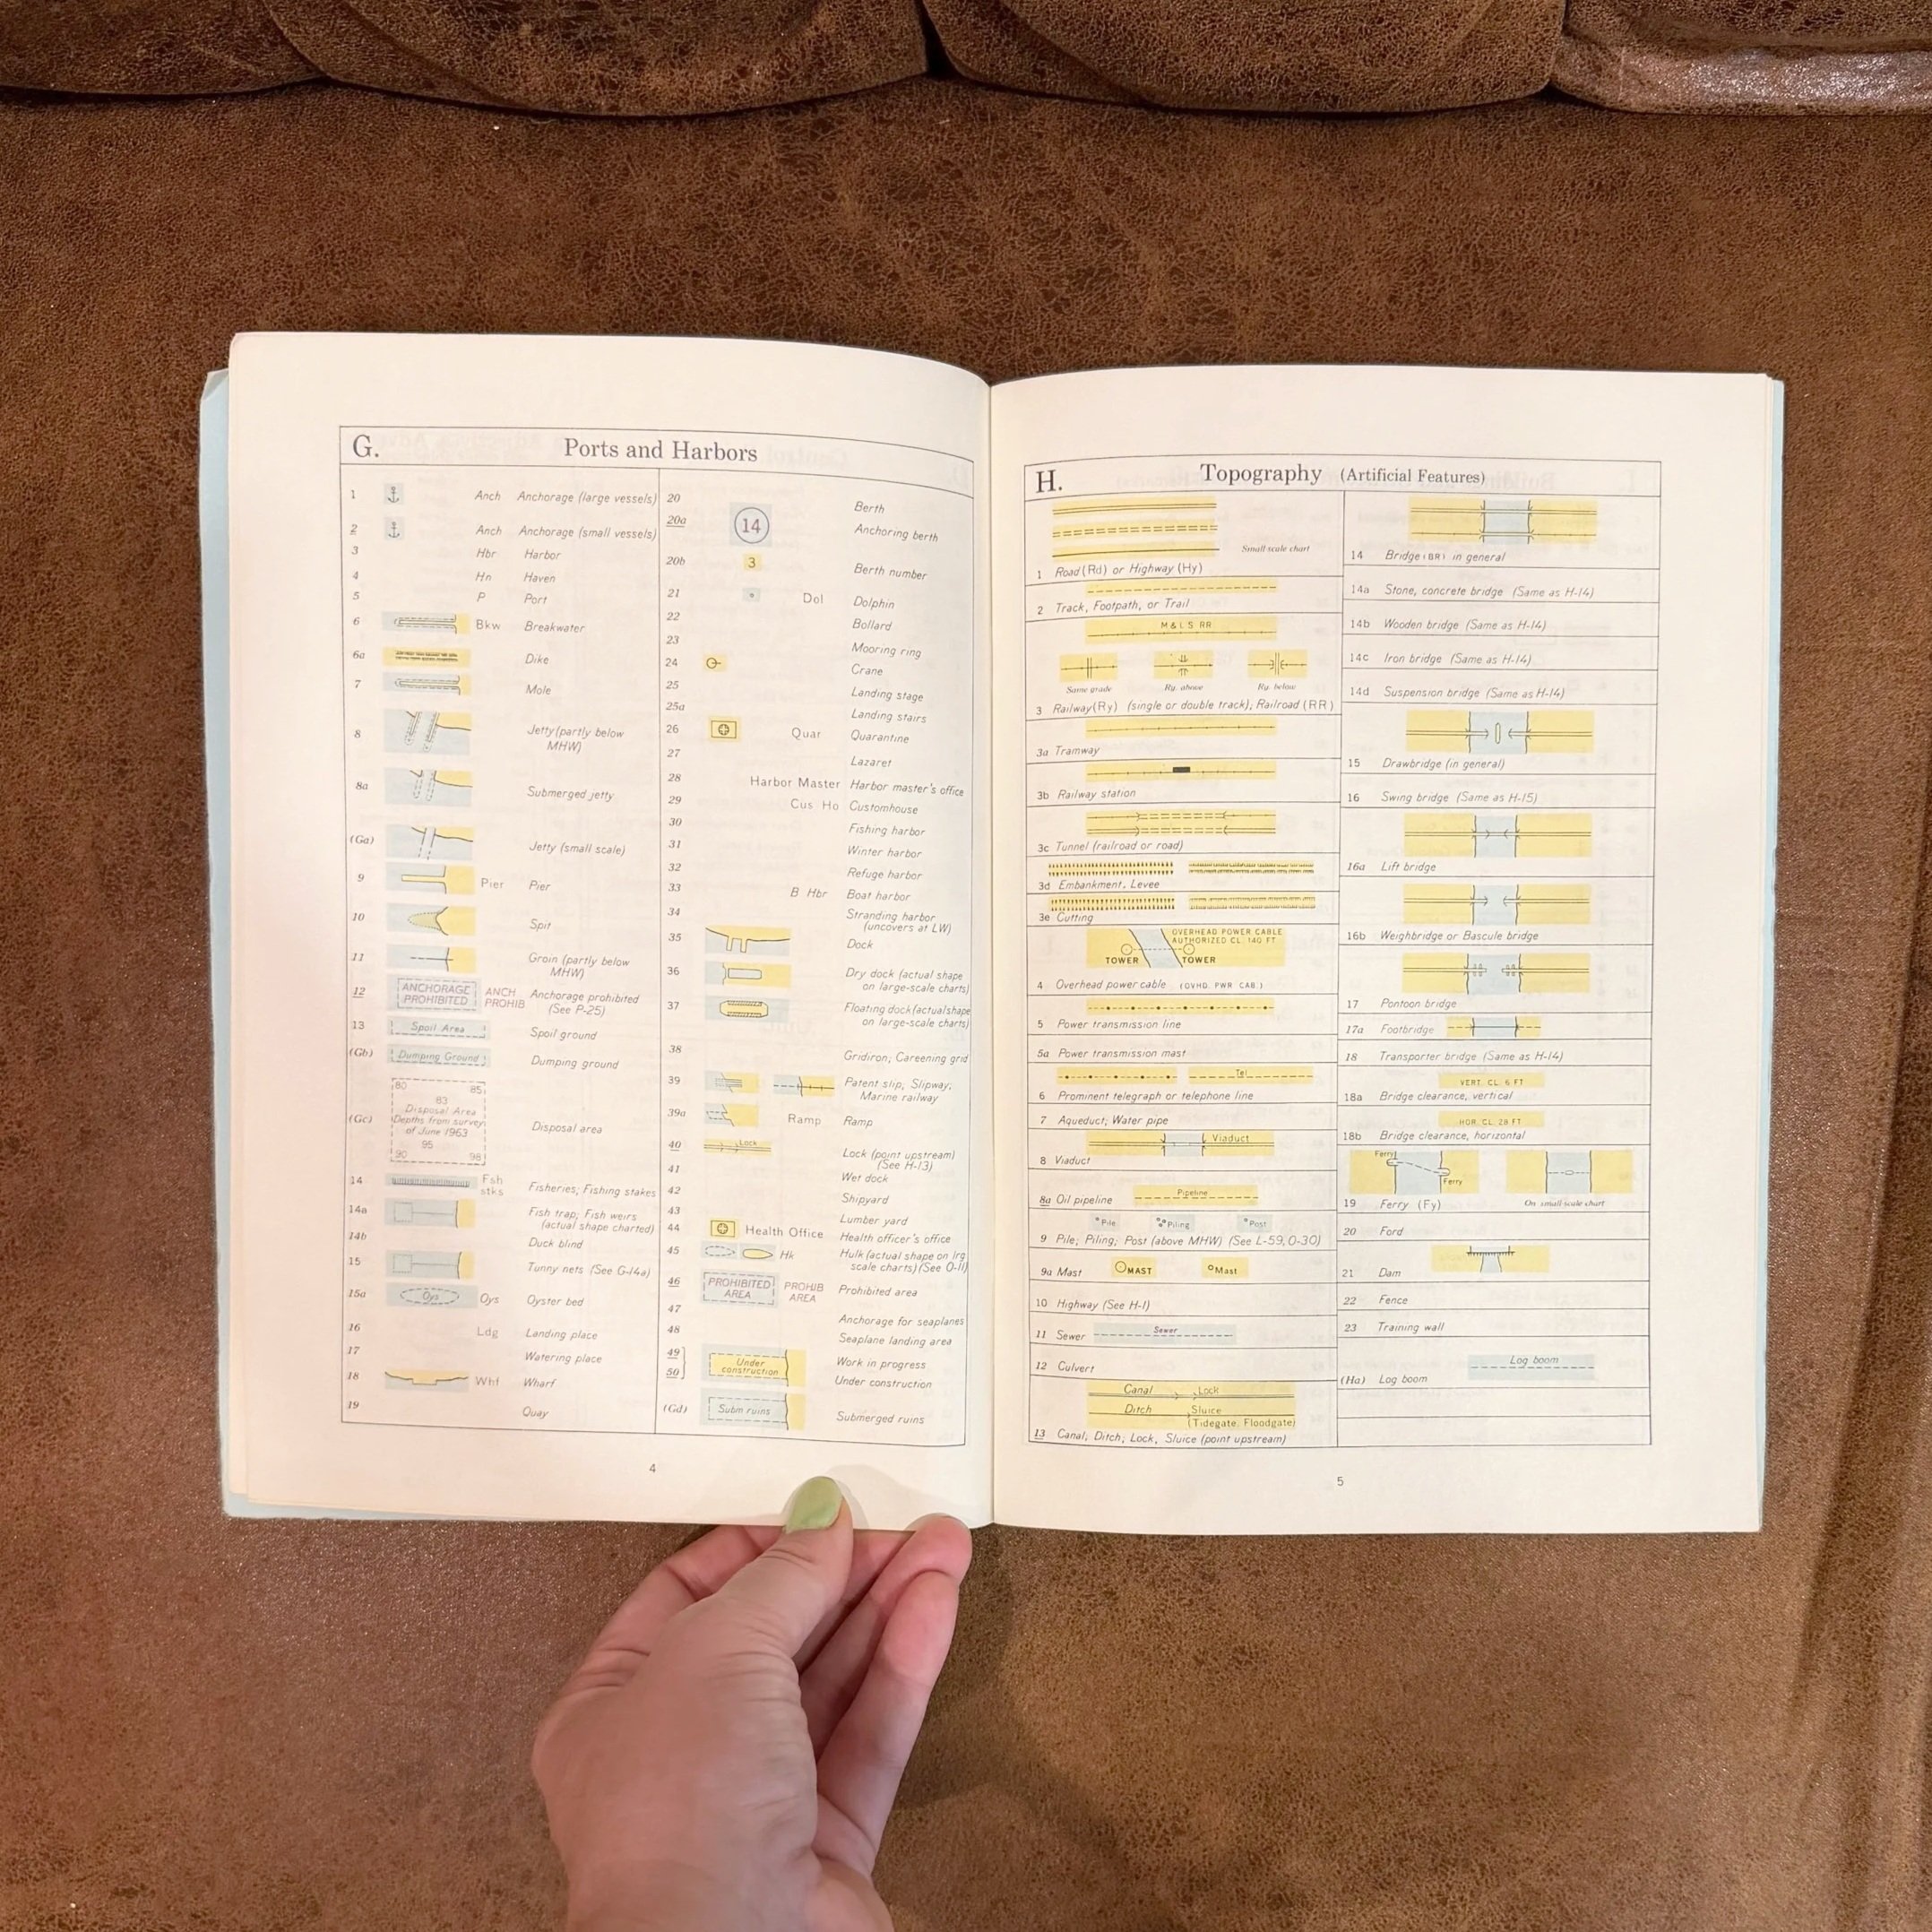 G. Ports and Harbors
1 Anch Anchorage (large vessels)
2 Anch Anchorage (small vessels)
3 Hbr Harbor
4 Hn Haven
5 P Port
6 Bkw Breakwater
6a Dike
7 Mole
8 Jetty (partly below
MHW)
8a Submerged jetty
(Ga) Jetty (small scale)
9 Pier Pier
10 Spit
11 Groin (partly below
MHW)
12 ANCHORAGE PROHIBITED ANCH PROHIB Anchorage prohibited
(See P-25)
13 Spoil Area Spoil ground
(Gb) Dumping Ground Dumping ground
80 85
83
Disposal Area
(Gc) Depths from survey Disposal area
of June 1963
95
90 98
14 Fsh stks Fisheries; Fishing stakes
14a Fish trap; Fish weirs
(actual shape charted)
14b Duck blind
15 Tunny nets (See G-14a)
15a Oys Oys Oyster bed
16 Ldg Landing place
17 Watering place
18 Whf Wharf
19 Quay
20 Berth
20a 14 Anchoring berth
20b 3 Berth number
21 Dol Dolphin
22 Bollard
23 Mooring ring
24 Crane
25 Landing stage
25a Landing stairs
26 Quar Quarantine
27 Lazaret
28 Harbor Master Harbor master's office
29 Cus Ho Customhouse
30 Fishing harbor
31 Winter harbor
32 Refuge harbor
33 B Hbr Boat harbor
34 Stranding harbor
(uncovers at LW)
35 Dock
36 Dry dock (actual shape
on large-scale charts)
37 Floating dock (actual shape
on large-scale charts)
38 Gridiron; Careening grid
39 Patent slip; Slipway;
Marine railway
39a Ramp Ramp
40 Lock Lock (point upstream)
(See H-13)
41 Wet dock
42 Shipyard
43 Lumber yard
44 Health Office Health officer's office
45 Hk Hulk (actual shape on lrg
scale charts) (See O-11)
46 PROHIBITED AREA PROHIB AREA Prohibited area
47 Anchorage for seaplanes
48 Seaplane landing area
49 Under Work in progress
50 construction Under construction
(Gd) Subm ruins Submerged ruins
4
H. Topography (Artificial Features)
Small-scale chart
1 Road (Rd) or Highway (Hy)
2 Track, Footpath, or Trail
M & L S RR
Same grade Ry. above Ry. below
3 Railway (Ry) (single or double track); Railroad (RR)
3a Tramway
3b Railway station
3c Tunnel (railroad or road)
3d Embankment, Levee
3e Cutting
OVERHEAD POWER CABLE
AUTHORIZED CL. 140 FT
TOWER TOWER
4 Overhead power cable (OVHD. PWR. CAB.)
5 Power transmission line
5a Power transmission mast
Tel
6 Prominent telegraph or telephone line
7 Aqueduct; Water pipe
Viaduct
8 Viaduct
8a Oil pipeline Pipeline
Pile Piling Post
9 Pile; Piling; Post (above MHW) (See L-59, O-30)
9a Mast MAST Mast
10 Highway (See H-1)
11 Sewer Sewer
12 Culvert
Canal Lock
Ditch Sluice
(Tidegate, Floodgate)
13 Canal; Ditch; Lock, Sluice (point upstream)
14 Bridge (BR) in general
14a Stone, concrete bridge (Same as H-14)
14b Wooden bridge (Same as H-14)
14c Iron bridge (Same as H-14)
14d Suspension bridge (Same as H-14)
15 Drawbridge (in general)
16 Swing bridge (Same as H-15)
16a Lift bridge
16b Weighbridge or Bascule bridge
17 Pontoon bridge
17a Footbridge
18 Transporter bridge (Same as H-14)
VERT. CL. 6 FT
18a Bridge clearance, vertical
HOR. CL. 28 FT
18b Bridge clearance, horizontal
Ferry
Ferry
19 Ferry (Fy) On small-scale chart
20 Ford
21 Dam
22 Fence
23 Training wall
Log boom
(Ha) Log boom
5